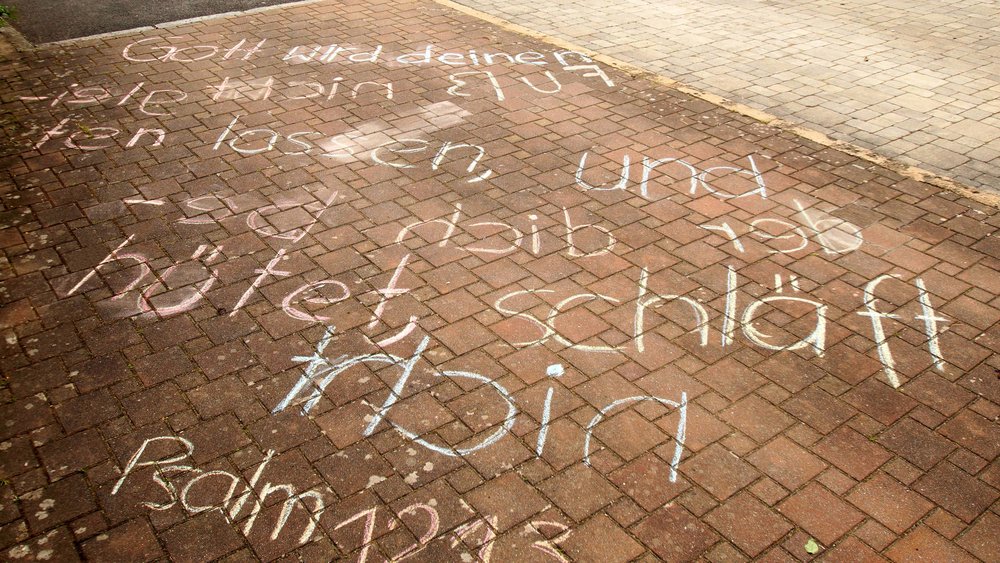 Gott wird deinen
Fuß nicht glei-
ten lassen und
der dich be-
hütet, schläft
nicht
Psalm 121,3